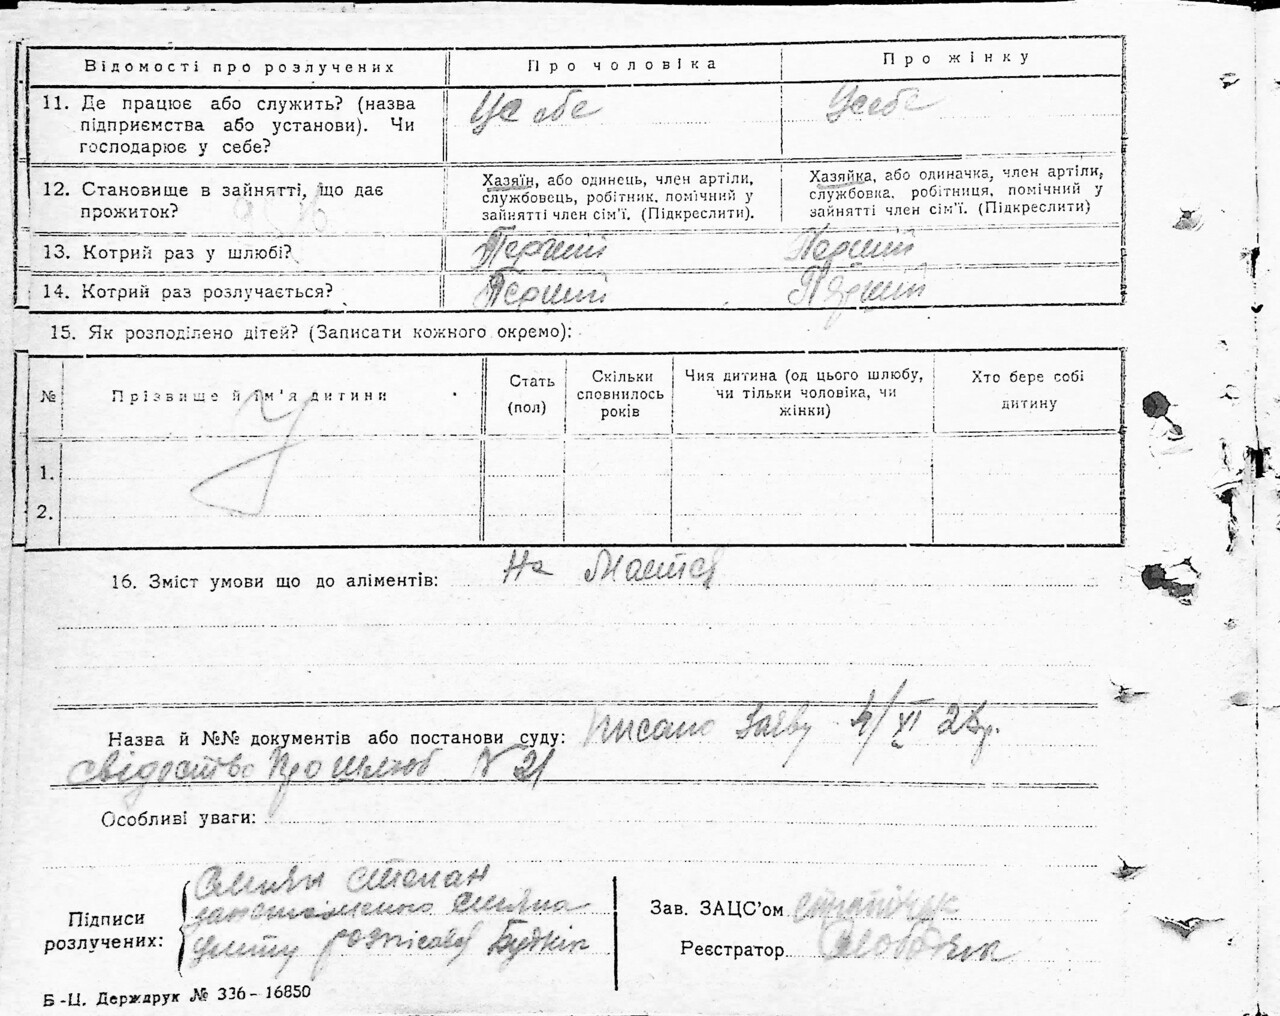 Відомості про розлучених
Про чоловіка
Про жінку
11. Де працює або служить? (назва підприємства або установи). Чи господарює у себе?
Усебе
Усебе
12. Становище в зайнятті, що дає прожиток?
Хазяїн, або одинець, член артіли, службовець, робітник, помічний у зайнятті член сім'ї. (Підкреслити).
Хазяйка, або одиначка, член артіли, службовка, робітниця, помічний у зайнятті член сім'ї. (Підкреслити)
13. Котрий раз у шлюбі?
Перший
Перший
14. Котрий раз розлучається?
Перший
Перший
15. Як розподілено дітей? (Записати кожного окремо):
№
Прізвище й ім'я дитини
Стать (пол)
Скільки сповнилось років
Чия дитина (од цього шлюбу, чи тільки чоловіка, чи жінки)
Хто бере собі дитину
1.
2.
16. Зміст умови що до аліментів: На
Назва й №№ документів або постанови суду: Писано Заяву 4/XI
свідоство Про шлюб N 21
Особливі уваги:
Підписи розлучених:
Степан
Зав. ЗАЦС'ом
Реєстратор
Б-Ц. Держдрук № 336-16850